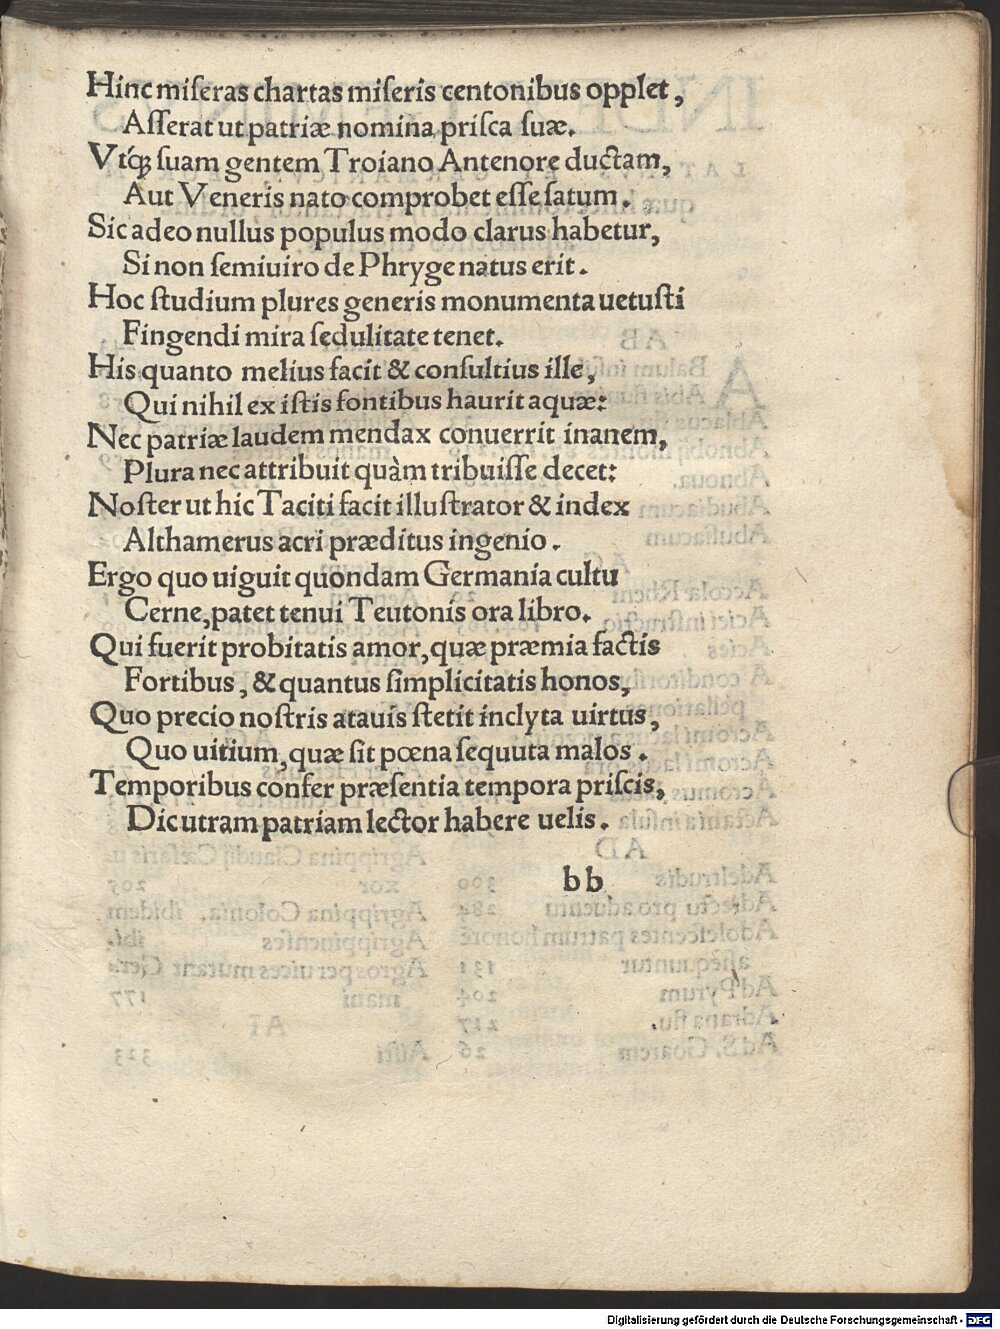 Hinc miſeras chartas miſeris centonibus opplet,
Aſſerat ut patriæ nomina priſca ſuæ.
Vtq́ꝫ ſuam gentem Troiano Antenore ductam,
Aut Veneris nato comprobet eſſe ſatum.
Sic adeo nullus populus modo clarus habetur,
Si non ſemiuiro de Phryge natus erit.
Hoc ſtudium plures generis monumenta uetuſti
Fingendi mira ſedulitate tenet.
His quanto melius facit & conſultius ille,
Qui nihil ex iſtis fontibus haurit aquæ:
Nec patriæ laudem mendax conuerrit inanem,
Plura nec attribuit quàm tribuiſſe decet:
Noſter ut hic Taciti facit illuſtrator & index
Althamerus acri præditus ingenio.
Ergo quo uiguit quondam Germania cultu
Cerne, patet tenui Teutonis ora libro.
Qui fuerit probitatis amor, quæ præmia factis
Fortibus, & quantus ſimplicitatis honos,
Quo precio noſtris atauis ſtetit inclyta uirtus,
Quo uitium, quæ ſit pœna ſequuta malos.
Temporibus confer præſentia tempora priſcis,
Dic utram patriam lector habere uelis.
bb
Digitalisierung gefördert durch die Deutsche Forschungsgemeinschaft - DFG